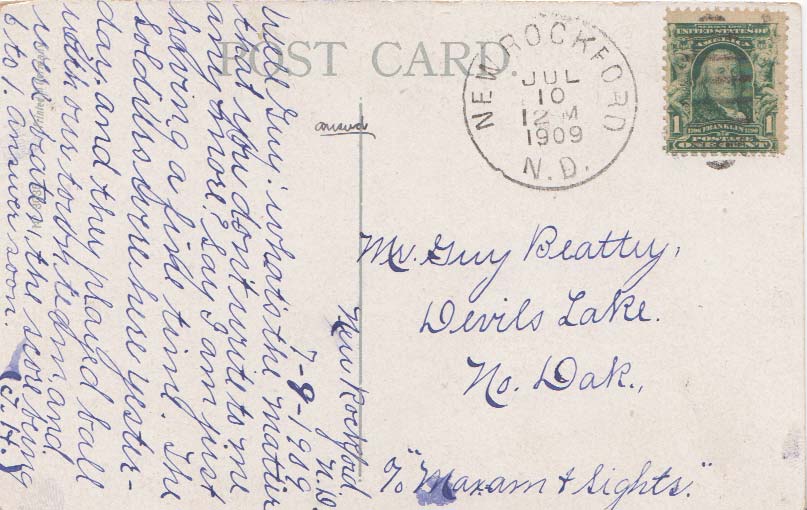 POST CARD.
NEW ROCKFORD
JUL
10
12 M
1909
N.D.
SERIES 1902
UNITED STATES OF
AMERICA
1706 FRANKLIN 1790
POSTAGE
1 ONE CENT 1
New Rockford
N.D.
7-9-1909
Guy: whats the matter
that you don't write to me
any more? Say I am just
having a fine time. The
Soldiers were here yester-
day, and they played ball
with our today, team, and
were beaten, the score being
6 to 1. answer soon.
Mr. Guy Beatty,
Devils Lake.
No. Dak.,
℅ "Maxam & Sights."